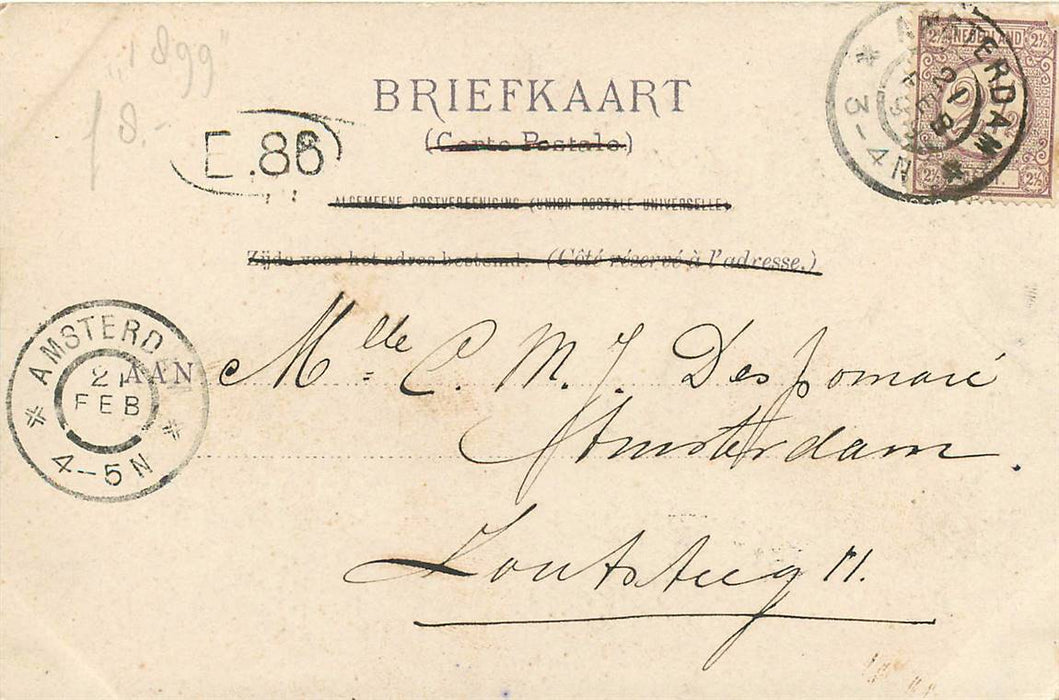 „1899"
f 8.-
BRIEFKAART
(Carte Postale.)
E.86
ALGEMEENE POSTVEREENIGING (UNION POSTALE UNIVERSELLE)
Zijde voor het adres bestemd. (Côté réservé à l'adresse.)
AMSTERDAM
21 FEB
3-4N
2½ NEDERLAND 2½
2½ CENT 2½
AMSTERDAM
21
FEB
4-5N
AAN Mlle C. M. J. Des Jomarié
Amsterdam.
Zoutsteeg 11.